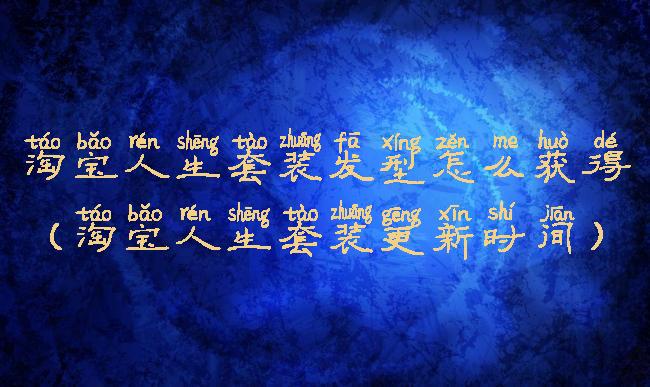 táo bǎo rén shēng tào zhuāng fà xíng zěn me huò dé
淘宝人生套装发型怎么获得
táo bǎo rén shēng tào zhuāng gēng xīn shí jiān
(淘宝人生套装更新时间)